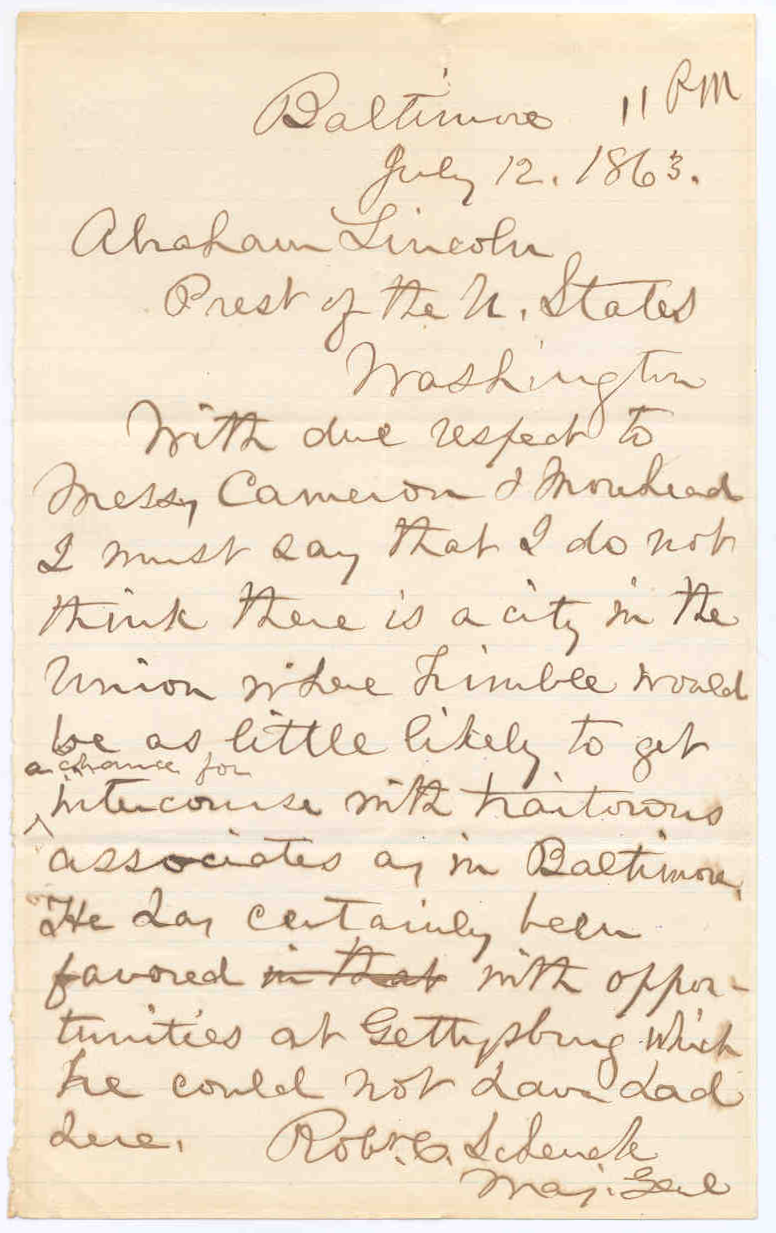 Baltimore 11 PM
July 12. 1863.
Abraham Lincoln
Prest of the U. States
Washington
With due respect to
Messs, Cameron & Morehead
I must say that I do not
think there is a city in the
Union where Trimble would
be as little likely to get
a chance for
intercourse with traitorous
associates as in Baltimore.
He has certainly been
favored in that with oppor-
tunities at Gettysburg which
he could not have had
here. Robt. C. Schenck
Maj. Genl